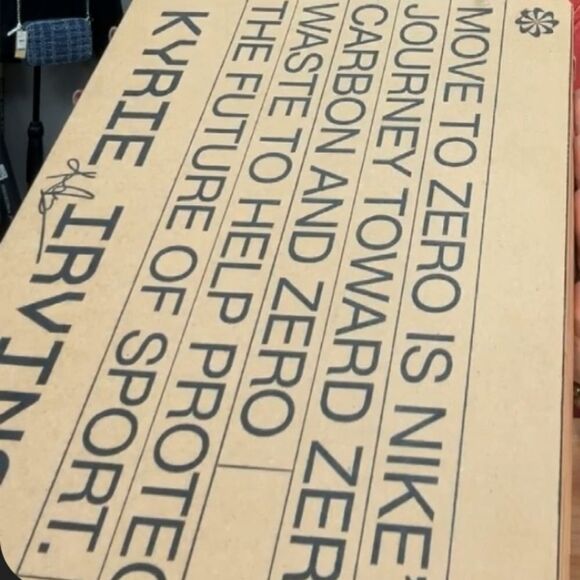 MOVE TO ZERO IS NIKE'
JOURNEY TOWARD ZER
CARBON AND ZERO
WASTE TO HELP PROTEC
THE FUTURE OF SPORT.
KYRIE IRVING